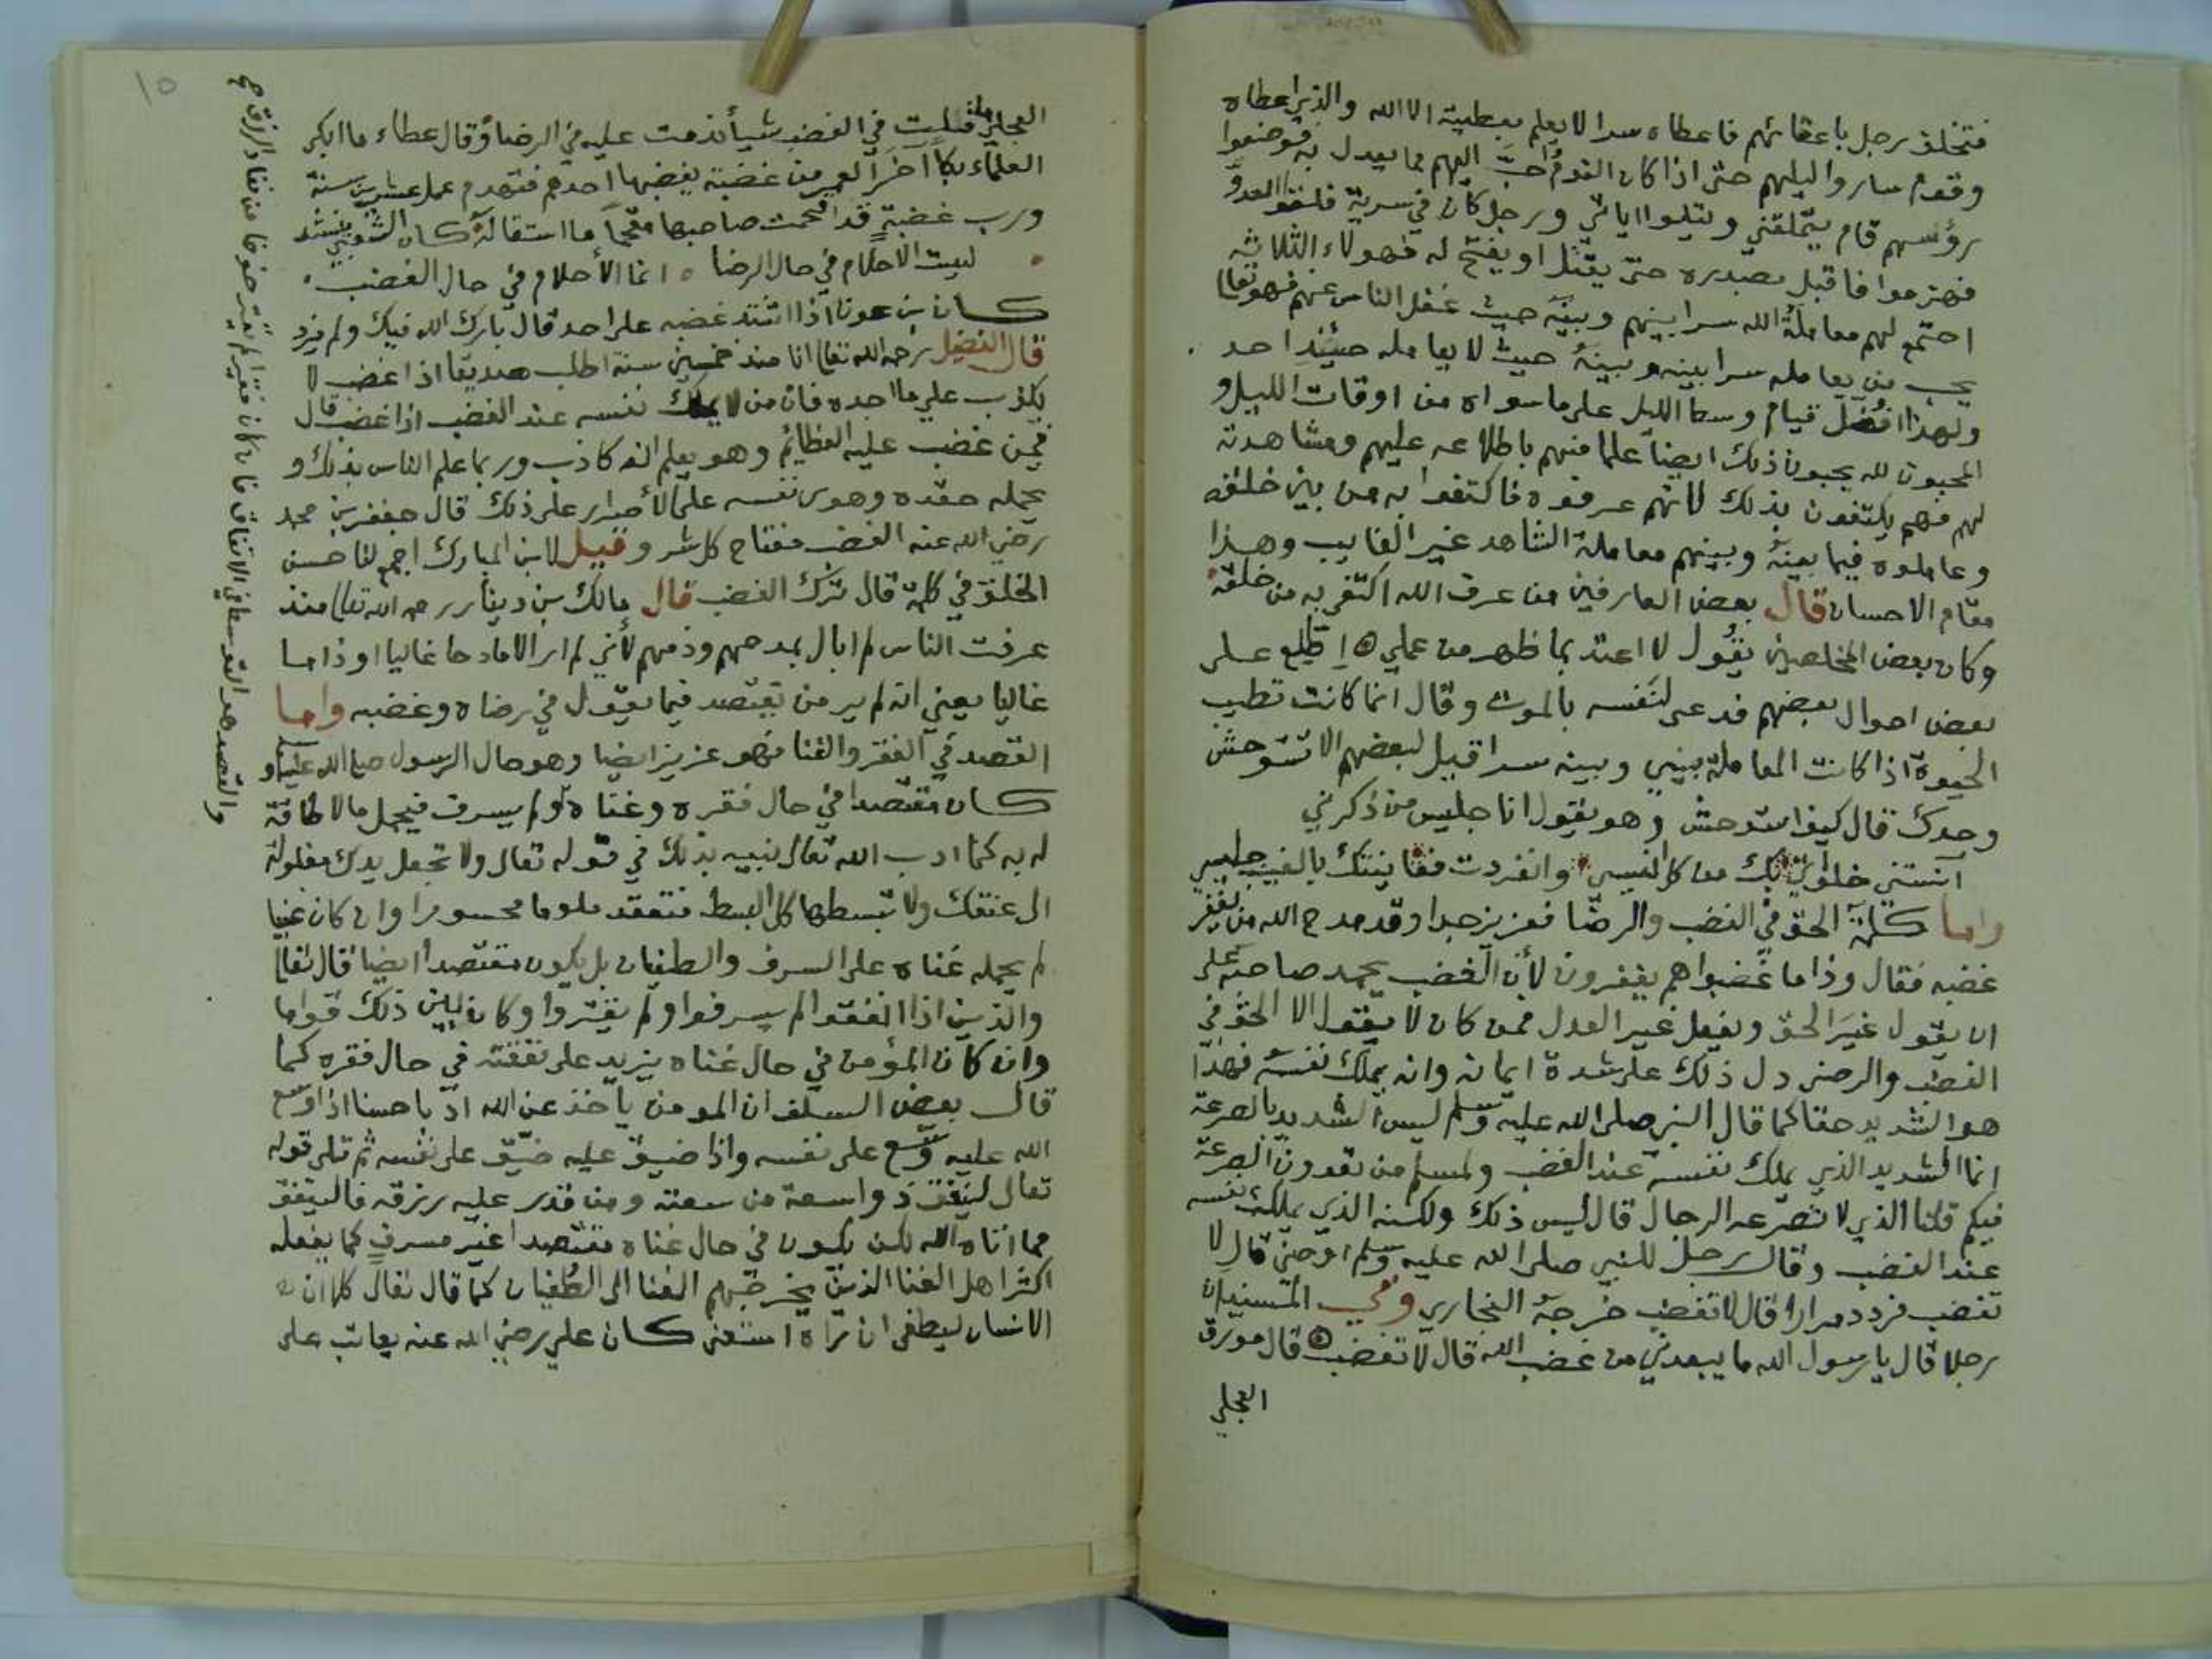 فتخلف رجل باعقابهم فاعطاه سرا لا يعلم بعطيته الا الله والذي اعطاه
وقوم ساروا ليلهم حتى اذا كان النوم احبّ اليهم مما يعدل به فوضعوا
رؤسهم قام يتملقني ويتلوا اياتي ورجل كان في سرية فلقوا العدوّ
فهزموا فاقبل بصدره حتى يقتل او يفتح له فهولاء الثلاثه
اجتمع لهم معاملة الله سرا بينهم وبينه حيث غفل الناس عنهم فهو تعالى
يحب من يعامله سرا بينه وبينه حيث لا يعامله حينئذ احد
ولهذا فضل قيام وسط الليل على ما سواه من اوقات الليل و
المحبون لله يحبون ذلك ايضا علما منهم باطلاعه عليهم ومشاهدته
لهم فهم يكتفون بذلك لانهم عرفوه فاكتفوا به من بين خلقه
وعاملوه فيما بينه وبينهم معاملة الشاهد غير الغايب وهذا
مقام الاحسان قال بعض العارفين من عرف الله اكتفى به من خلقه
وكان بعض المخلصين يقول لا اعتد بما ظهر من عملي ه اطلع على
بعض احوال بعضهم فدعى لنفسه بالموت وقال انما كانت تطيب
الحيوة اذا كانت المعاملة بيني وبينه سرا قيل لبعضهم الا تستوحش
وحدك قال كيف استوحش وهو يقول انا جليس من ذكرني
آنستني خلواتي بك من كل انيسي وانفردت فعاينتك بالغيب جليسي
واما كلمة الحق في الغضب والرضا فعزيز جدا وقد مدح الله من يغفر
غضبه فقال وذا ما غضبوا هم يغفرون لأن الغضب يحمد صاحبه على
ان يقول غير الحق ويفعل غير العدل فمن كان لا يقول الا الحق في
الغضب والرضى دل ذلك على شدة ايمانه وانه يملك نفسه فهذا
هو الشديد حقا كما قال النبي صلى الله عليه وسلم ليس الشديد بالصرعة
انما الشديد الذي يملك نفسه عند الغضب ولمسلم من تعدون الصرعة
فيكم قلنا الذي لا تصرعه الرجال قال ليس ذلك ولكنه الذي يملك نفسه
عند الغضب وقال رجل للنبي صلى الله عليه وسلم اوصني قال لا
تغضب فردد مرارا قال لا تغضب خرجه البخاري وفي المسند ان
رجلا قال يا رسول الله ما يبعدني من غضب الله قال لا تغضب قال مورق
العجلي
١٥
العجلي ما قلت في الغضب شيأ ندمت عليه في الرضا وقال عطاء ما ابكى
العلماء بكآ آخر العمر من غضبة يغضبها احدهم فتهدم عمل عشرين سنة
ورب غضبة قد اقحمت صاحبها مقحما ما استقاله كان الشعبي ينشد
ليست الاحلام في حال الرضا ٥ انما الأحلام في حال الغضب
كان بن عون اذا اشتد غضبه على احد قال بارك الله فيك ولم يزد
قال الفضيل رحمه الله تعالى انا منذ خمسين سنة اطلب صديقا اذا غضب لا
يكذب علي ما اجده فان من لا يملك نفسه عند الغضب اذا غضب قال
فمن غضب عليه العظائم وهو يعلم انه كاذب وربما علم الناس بذلك و
يحمله حقده وهوى نفسه على الأصرار على ذلك قال جعفر بن محمد
رضي الله عنه الغضب مفتاح كل شر وقيل لابن المبارك اجمع لنا حسن
الخلق في كلمة قال ترك الغضب قال مالك بن دينار رحمه الله تعالى منذ
عرفت الناس لم ابال بمدحهم وذمهم لأني لم ار الا مادحا غاليا او ذاما
غاليا يعني انه لم ير من يقتصد فيما يقول في رضاه وغضبه واما
القصد في الفقر والغنا فهو عزيز ايضا وهو حال الرسول صلى الله عليه وسلم
كان مقتصدا في حال فقره وغناه ولم يسرف فيحمل ما لا طاقة
له به كما ادب الله تعالى نبيه بذلك في قوله تعالى ولا تجعل يدك مغلولة
الى عنقك ولا تبسطها كل البسط فتقعد ملوما محسورا وان كان غنيا
لم يحمله غناه على السرف والطغيان بل يكون مقتصدا ايضا قال تعالى
والذين اذا انفقوا لم يسرفوا ولم يقتروا وكان بين ذلك قواما
وان كان المؤمن في حال غناه يزيد على نفقته في حال فقره كما
قال بعض السلف ان المومن يأخذ عن الله ادبا حسنا اذا وسع
الله عليه وسّع على نفسه واذا ضيق عليه ضيّق على نفسه ثم تلى قوله
تعالى لينفق ذو سعة من سعته ومن قدر عليه رزقه فالينفق
مما اتاه الله لكن يكون في حال غناه مقتصدا غير مسرف كما يفعله
اكثر اهل الغنا الذين يخرجهم الغنا الى الطغيان كما قال تعالى كلا ان
الانسان ليطغى ان رآه استغنى كان علي رضي الله عنه يعاتب على
والقصد هو التوسط في الانفاق فان كان فقيرا لم يقتر خوفا من نفاد الرزق